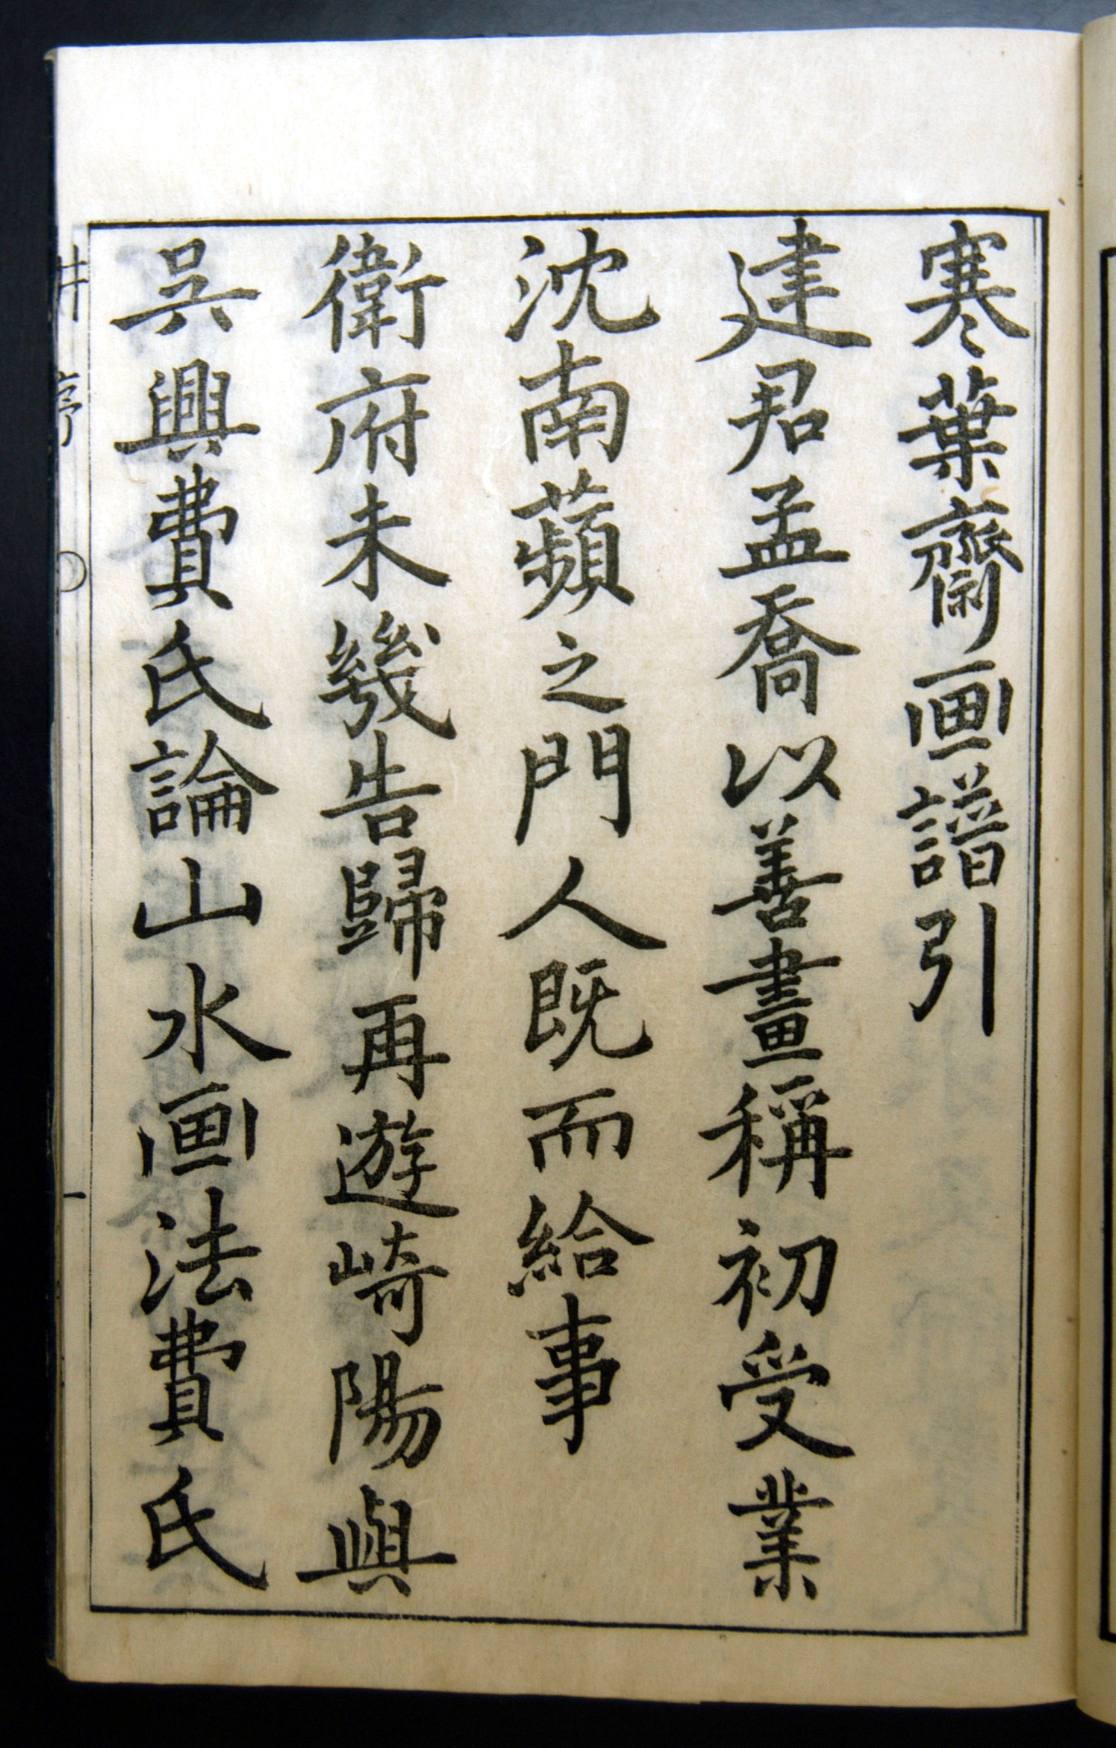 寒葉齋画譜引
建君孟喬以善畫稱初受業
沈南蘋之門人既而給事
衛府未幾告歸再遊崎陽與
呉興費氏論山水画法費氏
序 〇 一